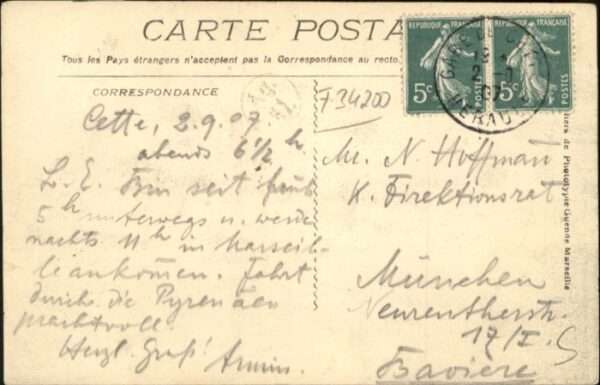 CARTE POSTA
Tous les Pays étrangers n'acceptent pas la Correspondance au recto.
RÉPUBLIQUE FRANÇAISE
5c
POSTES
RÉPUBLIQUE FRANÇAISE
5c
POSTES
GARE DE CETTE
HÉRAULT
CORRESPONDANCE
F.34200
Cette, 2.9.07
abends 6 1/2 h
L. E. Bin seit früh
5h unterwegs u. werde
nachts 11h in Marseil-
le ankommen. Fahrt
durch die Pyrenäen
prachtvoll.
Herzl. Gruß! Armin.
Mr. N. Hoffman
K. Direktionsrat
München
Neureutherstr.
17/I.
Bavière
de Phototypie Guende Marseille